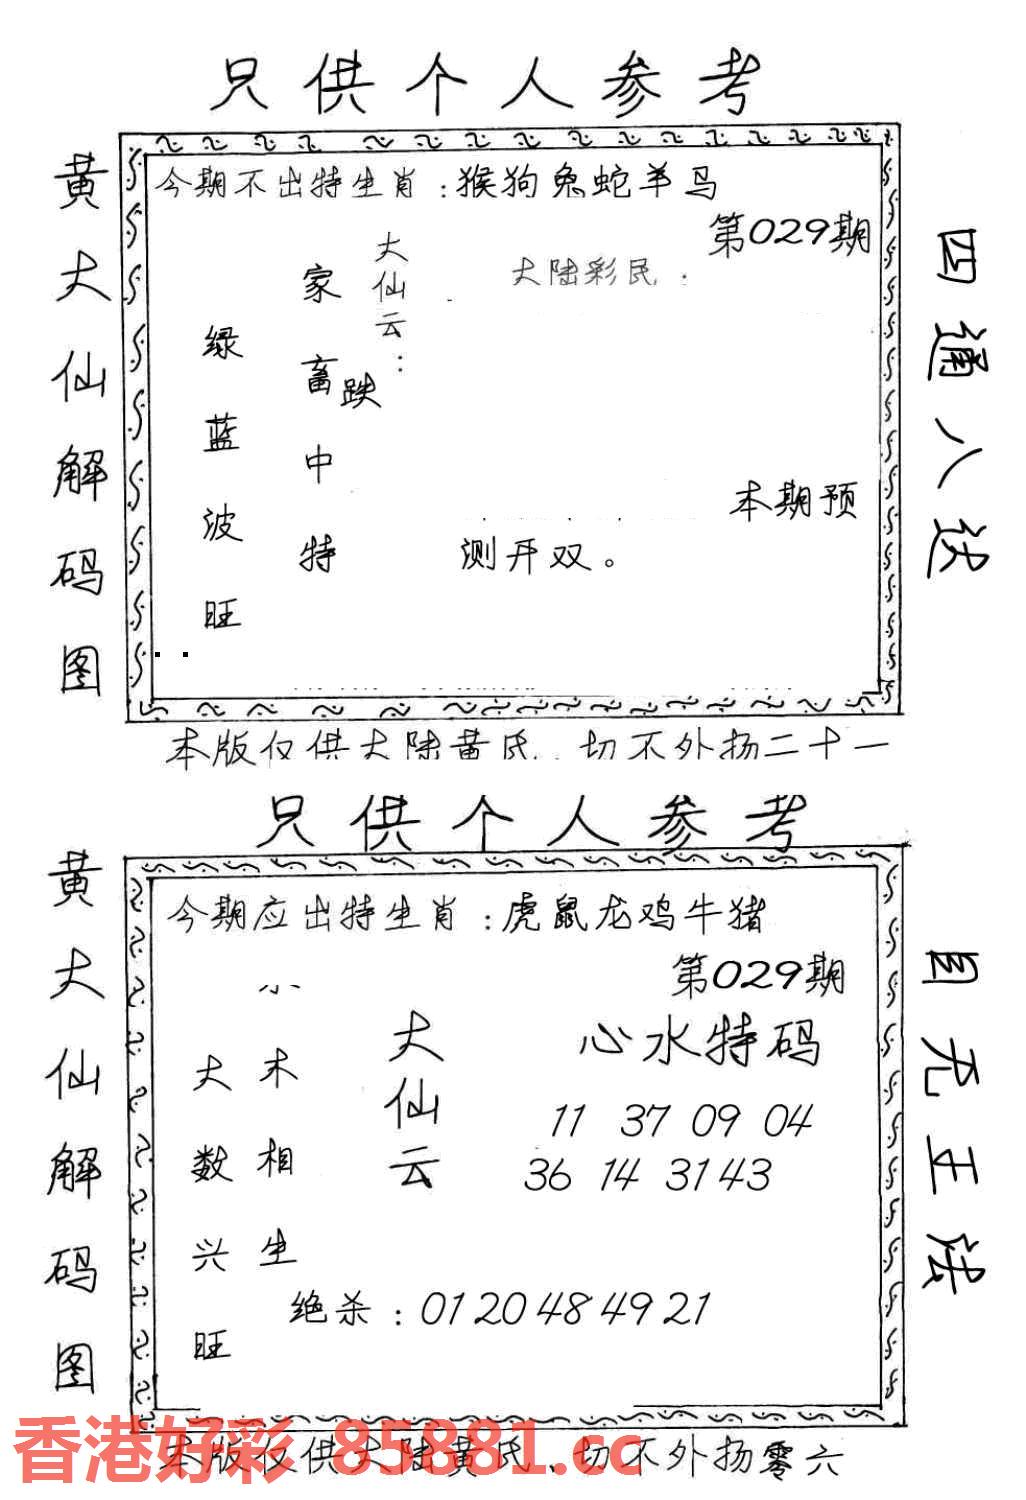 只供个人参考
黄大仙解码图
今期不出特生肖：猴狗兔蛇羊马
第029期
大陆彩民
大仙云：
家畜中特
跌
绿蓝波旺
本期预
测开双。
四通八达
本版仅供大陆黄氏、切不外扬二十一
只供个人参考
黄大仙解码图
今期应出特生肖：虎鼠龙鸡牛猪
第029期
心水特码
大仙云
11 37 09 04
36 14 31 43
木相生
大数兴旺
绝杀：01 20 48 49 21
目无王法
香港好彩 85881.cc
本版仅供大陆黄氏、切不外扬零六